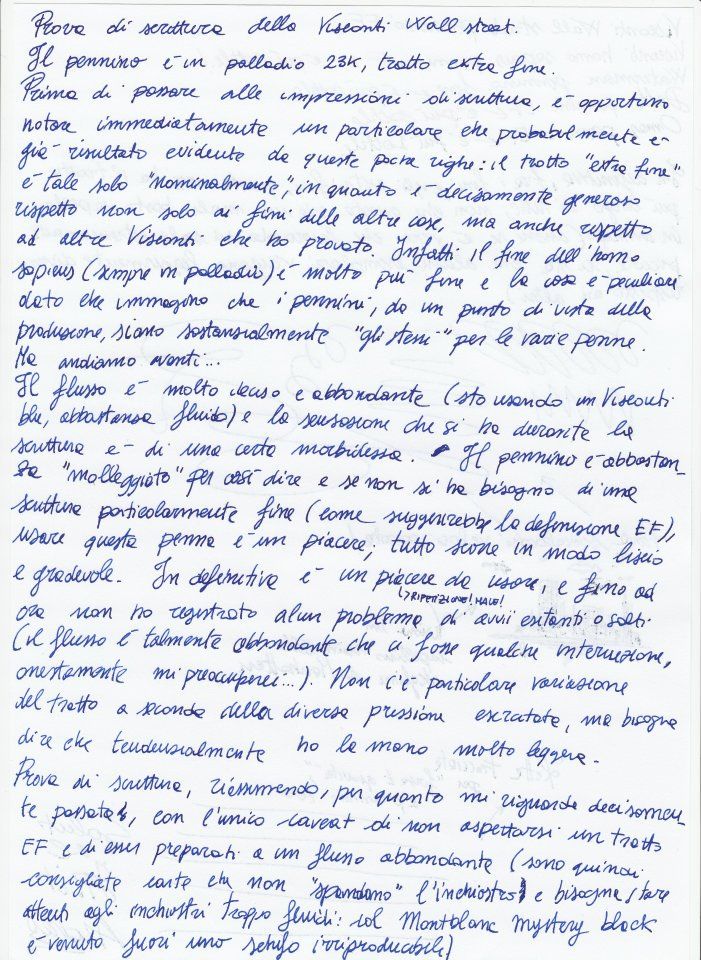 Prova di scrittura della Visconti Wall street.
Il pennino è in palladio 23K, tratto extra fine.
Prima di passare alle impressioni di scrittura, è opportuno
notare immediatamente un particolare che probabilmente è
già risultato evidente da queste poche righe: il tratto "extra fine"
è tale solo "nominalmente", in quanto è decisamente generoso
rispetto non solo ai fini delle altre case, ma anche rispetto
ad altre Visconti che ho provato. Infatti il fine dell'homo
sapiens (sempre in palladio) è molto più fine e la cosa è peculiare
dato che immagino che i pennini, da un punto di vista della
produzione, siano sostanzialmente "gli stessi" per le varie penne.
Ma andiamo avanti...
Il flusso è molto deciso e abbondante (sto usando un Visconti
blu, abbastanza fluido) e la sensazione che si ha durante la
scrittura è di una certa morbidezza. Il pennino è abbastan-
za "molleggiato" per così dire e se non si ha bisogno di una
scrittura particolarmente fine (come suggerirebbe la definizione EF),
usare questa penna è un piacere; tutto scorre in modo liscio
e gradevole. In definitiva è un piacere da usare, e fino ad
↳ RIPETIZIONE! MALE!
ora non ho registrato alcun problema di avvii esitanti o salti
(il flusso è talmente abbondante che ci fosse qualche interruzione,
onestamente mi preoccuperei...). Non c'è particolare variazione
del tratto a seconda della diversa pressione esercitata, ma bisogna
dire che tendenzialmente ho la mano molto leggera.
Prova di scrittura, riassumendo, per quanto mi riguarda decisamen-
te passata, con l'unico caveat di non aspettarsi un tratto
EF e di esser preparati a un flusso abbondante (sono quindi
consigliate carte che non "spandano" l'inchiostro e bisogna stare
attenti agli inchiostri troppo fluidi: col Montblanc Mystery black
è venuto fuori uno schifo irriproducibile)